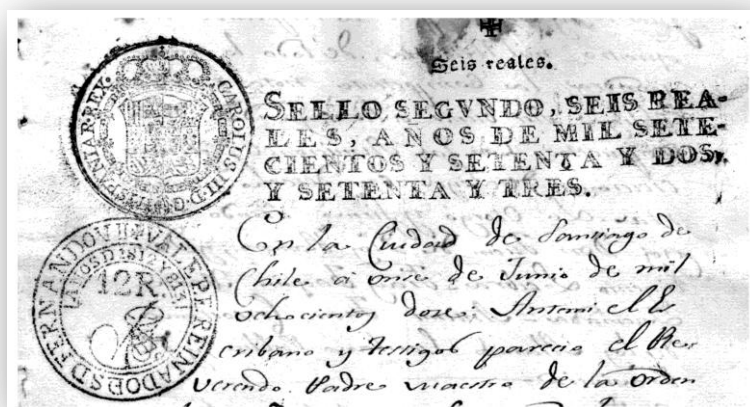 Seis reales.
SELLO SEGVNDO, SEIS REA-
LES, AÑOS DE MIL SETE-
CIENTOS Y SETENTA Y DOS,
Y SETENTA Y TRES.
CAROLUS III D.G. HISP. ET IND. R.
VALE P. EL REINADO D S D FERNANDO VII
AÑOS D 1812 Y 813
12 R.
En la Ciudad de Santiago de
Chile a onse de Junio de mil
ochocientos dose: Antemi el Es
cribano y testigos parecio el Re
verendo Padre maestro de la orden